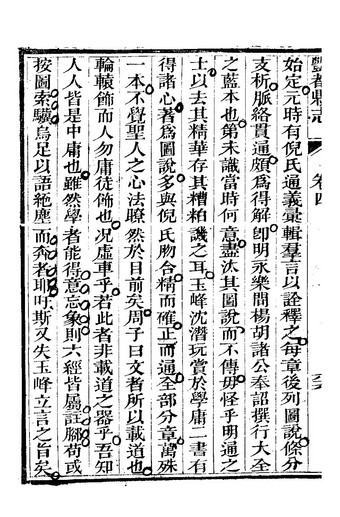 酆都縣志　卷四
始定元時有倪氏通義彙輯羣言以詮釋之每章後列圖說條分
支析脈絡貫通頗爲得解卽明永樂間楊胡諸公奉詔撰行大全
之藍本也第未識當時何意盡汰其圖說而不傳毋怪乎明通之
士以去其精華存其糟粕譏之耳玉峰沈潛玩賞於學庸二書有
得諸心著爲圖說多與倪氏脗合精而確正而通全部分章萬殊
一本不覺聖人之心法瞭然於目前矣周子曰文者所以載道也
輪轅飾而人勿庸徒飾也况虛車乎若此者非載道之器乎吾知
人人皆是中庸也雖然學者能得意忘象則六經皆屬註腳苟或
按圖索驥烏足以語絶塵而奔者耶吁斯又失玉峰立言之旨矣